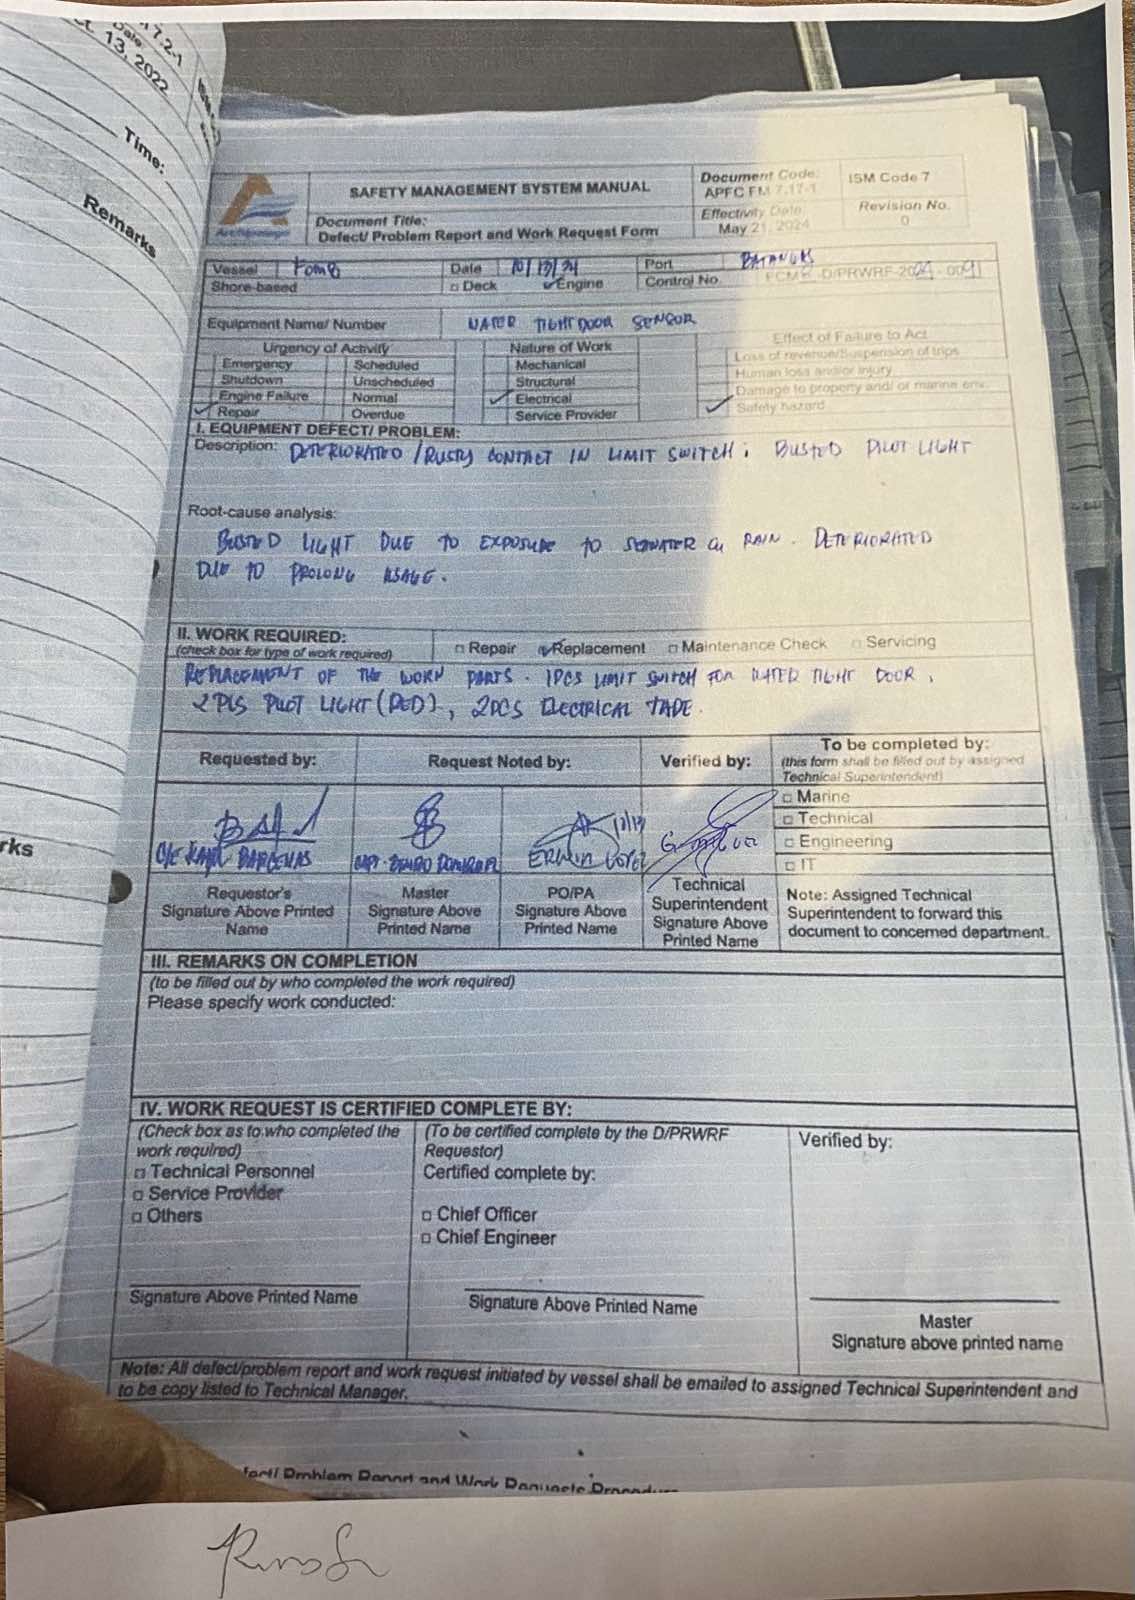 7.2-1
Date:
13, 2022
Time:
Remarks
rks
SAFETY MANAGEMENT SYSTEM MANUAL
Document Title:
Defect/ Problem Report and Work Request Form
Document Code:
APFC FM 7.17-1
Effectivity Date
May 21, 2024
ISM Code 7
Revision No.
0
Vessel FCM8 Date 10/13/24 Port BATANGAS
Shore-based □ Deck ✓Engine Control No. FCM8-D/PRWRF-2024-0091
Equipment Name/ Number WATER TIGHT DOOR SENSOR
Urgency of Activity Nature of Work Effect of Failure to Act
Emergency Scheduled Mechanical Loss of revenue/Suspension of trips
Shutdown Unscheduled Structural Human loss and/or injury
Engine Failure Normal ✓ Electrical Damage to property and/ or marine env.
✓ Repair Overdue Service Provider ✓ Safety hazard
I. EQUIPMENT DEFECT/ PROBLEM:
Description: DETERIORATED / RUSTY CONTACT IN LIMIT SWITCH; BUSTED PILOT LIGHT
Root-cause analysis:
BUSTED LIGHT DUE TO EXPOSURE TO SEAWATER RAIN. DETERIORATED
DUE TO PROLONG USAGE.
II. WORK REQUIRED:
(check box for type of work required) □ Repair ✓Replacement □ Maintenance Check □ Servicing
REPLACEMENT OF THE WORN PARTS. 1PCS LIMIT SWITCH FOR WATER TIGHT DOOR,
2 PCS PILOT LIGHT (RED), 2PCS ELECTRICAL TAPE.
Requested by: Request Noted by: Verified by: To be completed by:
(this form shall be filled out by assigned
Technical Superintendent)
□ Marine
□ Technical
□ Engineering
□ IT
C/E BARCENAS CAPT. ERWIN
Requestor's
Signature Above Printed
Name
Master
Signature Above
Printed Name
PO/PA
Signature Above
Printed Name
Technical
Superintendent
Signature Above
Printed Name
Note: Assigned Technical
Superintendent to forward this
document to concerned department.
III. REMARKS ON COMPLETION
(to be filled out by who completed the work required)
Please specify work conducted:
IV. WORK REQUEST IS CERTIFIED COMPLETE BY:
(Check box as to who completed the
work required)
□ Technical Personnel
□ Service Provider
□ Others
Signature Above Printed Name
(To be certified complete by the D/PRWRF
Requestor)
Certified complete by:
□ Chief Officer
□ Chief Engineer
Signature Above Printed Name
Verified by:
Master
Signature above printed name
Note: All defect/problem report and work request initiated by vessel shall be emailed to assigned Technical Superintendent and
to be copy listed to Technical Manager.
Problem Report and Work Requests